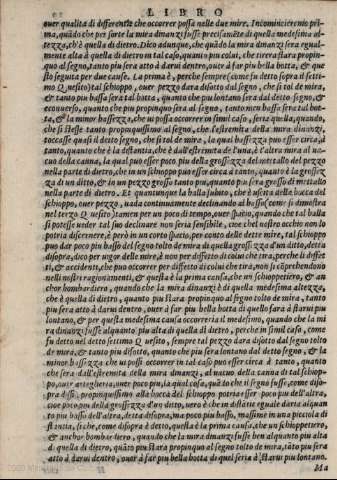 LIBRO
ouer qualita di differentie che occorrer possa nelle due mire. Incomincieremo pri-
ma, quādo che per sorte la mira dinanzi fusse precisamēte di quella medesima al-
tezza, ch'è quella di dietro. Dico adunque, che quādo la mira dinanzi sera egual-
mente alta à quella di dietro in tal caso, quanto piu colui, che tirera stara propin-
quo al segno, tanto piu sera atto à darui dentro, ouer à far piu bella botta, & que
sto seguita per due cause. La prima è, perche sempre (come fu detto sopra il setti-
mo Quesito) tal schioppo, ouer pezzo dara disotto dal segno, che si tol de mira,
& tanto piu bassa sera tal botta, quanto che piu lontano sera dal detto segno, &
econuerso, quanto che piu propinquo sera al segno, tanto men bassa sera tal bot-
ta, & la minor bassezza, che ui possa occorrer in simil caso, seria quella, quando
che si stesse tanto propinquissimo al segno, che l'estremita della mira dinanzi,
toccasse quasi il detto segno, che si tol de mira, la qual bassezza puo esser circa, à
tanto, quanto che è la distantia, che è dall'estremita de l'una, è l'altra mira al ua-
cuo della canna, la qual puo esser poco piu della grossezza del mettallo del pezzo
nella parte di dietro, che in un schioppo puo esser circa à tanto, quanto è la grossez
za di un ditto, & in un grosso pezzo tanto piu, quanto piu sera grosso di mettallo
nella parte di dietro. Et quantunque la balla subito, che è uscita delle bocca del
schioppo, ouer pezzo, uada continuamente declinando al basso (come si dimostra
nel terzo Quesito) tamen per un poco di tempo, ouer spatio, quando che tal balla
si potesse ueder tal suo declinare non seria sensibile, cioe chel nostro occhio non lo
potria discernere, è però in un corto spatio, per conto delle dette mire, tal schioppo
puo dar poco piu basso del segno tolto de mira di quella grossezza d'un ditto, detta
disopra, dico per uigor delle mire, è non per diffetto di colui che tira, perche li diffet
ti, & accidenti, che puo occorrer per diffetto di colui che tira, non si cōprehendono
nelli nostri ragionamenti, & questa è la prima causa, che un schioppettiero, & an
chor bombardiero, quando che la mira dinanzi è di quella medesima altezza,
che è quella di dietro, quanto piu stara propinquo al segno tolto de mira, tanto
piu sera atto à darui dentro, ouer à far piu bella botta di quello fara à starui piu
lontano, & per questa medesima causa occorreria il medesimo, quando che la mi
ra dinanzi fusse alquanto piu alta di quella di dietro, perche in simil caso, come
fu detto nel detto settimo Quesito, sempre tal pezzo dara disotto dal segno tolto
de mira, & tanto piu disotto, quanto che piu sera lontano dal detto segno, & la
minor bassezza che ui possi occorrer in tal caso puo esser circa à tanto, quanto
che sera dall'estremita della mira dinanzi, al uacuo della canna di tal schiop-
po, ouer artegliaria, ouer poco piu, la qual cosa, quādo che il segno fusse, come diso-
pra dissi, propinquissimo alla bocca del schioppo potria esser poco piu dell'altra,
cioe poco piu della grossezza d'un ditto, uero è che in distantie eguale daria alquan
to piu basso dell'altra, detta disopra, ma poco piu basso, massime in una piccola di
stantia, si che, come disopra è detto, questa è la prima causa, che un schioppettiero,
& anchor bombardiero, quando che la mira dinanzi fusse ben alquanto piu alta
di quella di dietro, quāto piu stara propinquo al segno tolto de mira, tāto piu sera
atto à darui dentro, ouer à far piu bella botta di quel seria à starui piu lontano.
Ma